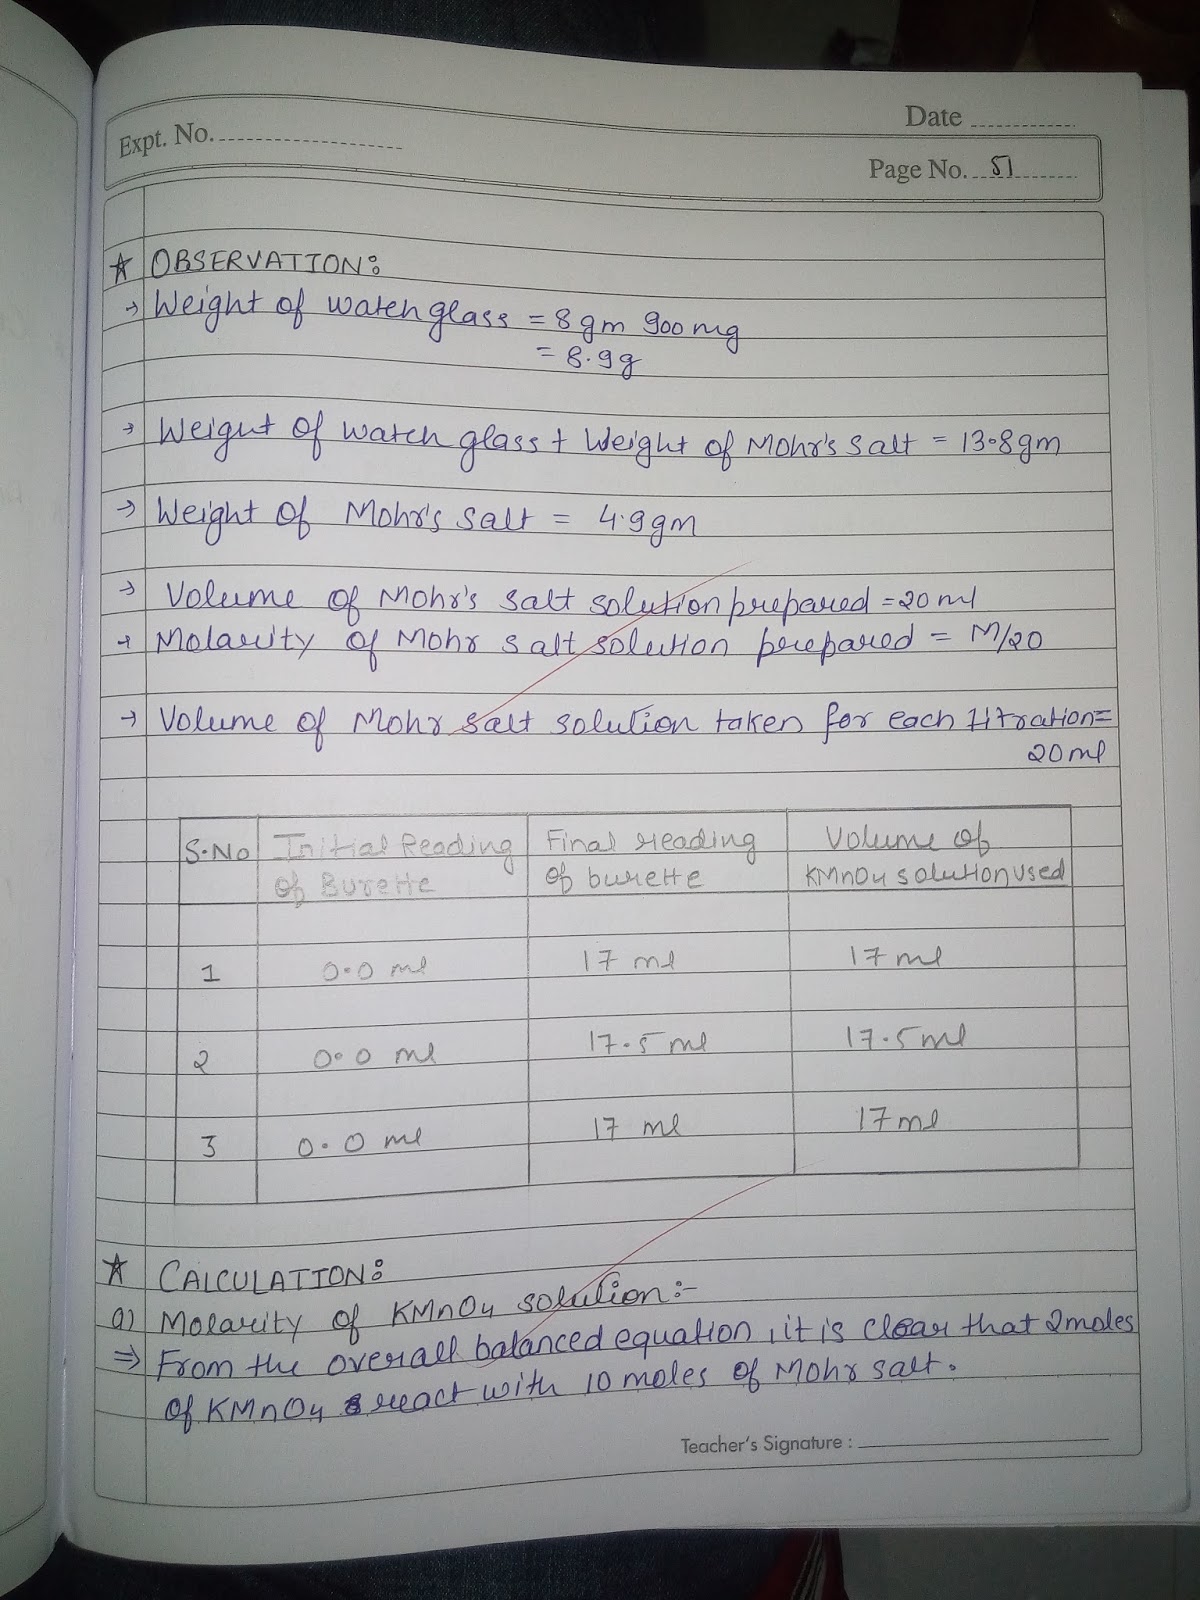 Date
Expt. No.
Page No. 51
☆ OBSERVATION:
→ Weight of watch glass = 8 gm 900 mg
= 8.9g
→ Weight of watch glass + Weight of Mohr's salt = 13.8gm
→ Weight of Mohr's salt = 4.9gm
→ Volume of Mohr's salt solution prepared = 20 ml
→ Molarity of Mohr salt solution prepared = M/20
→ Volume of Mohr salt solution taken for each titration =
20 ml
S.No Initial Reading of Burette Final reading of burette Volume of KMnO4 solution used
1 0.0 ml 17 ml 17 ml
2 0.0 ml 17.5 ml 17.5 ml
3 0.0 ml 17 ml 17 ml
☆ CALCULATION:
a) Molarity of KMnO4 solution:-
⇒ From the overall balanced equation, it is clear that 2 moles
of KMnO4 react with 10 moles of Mohr salt.
Teacher's Signature :